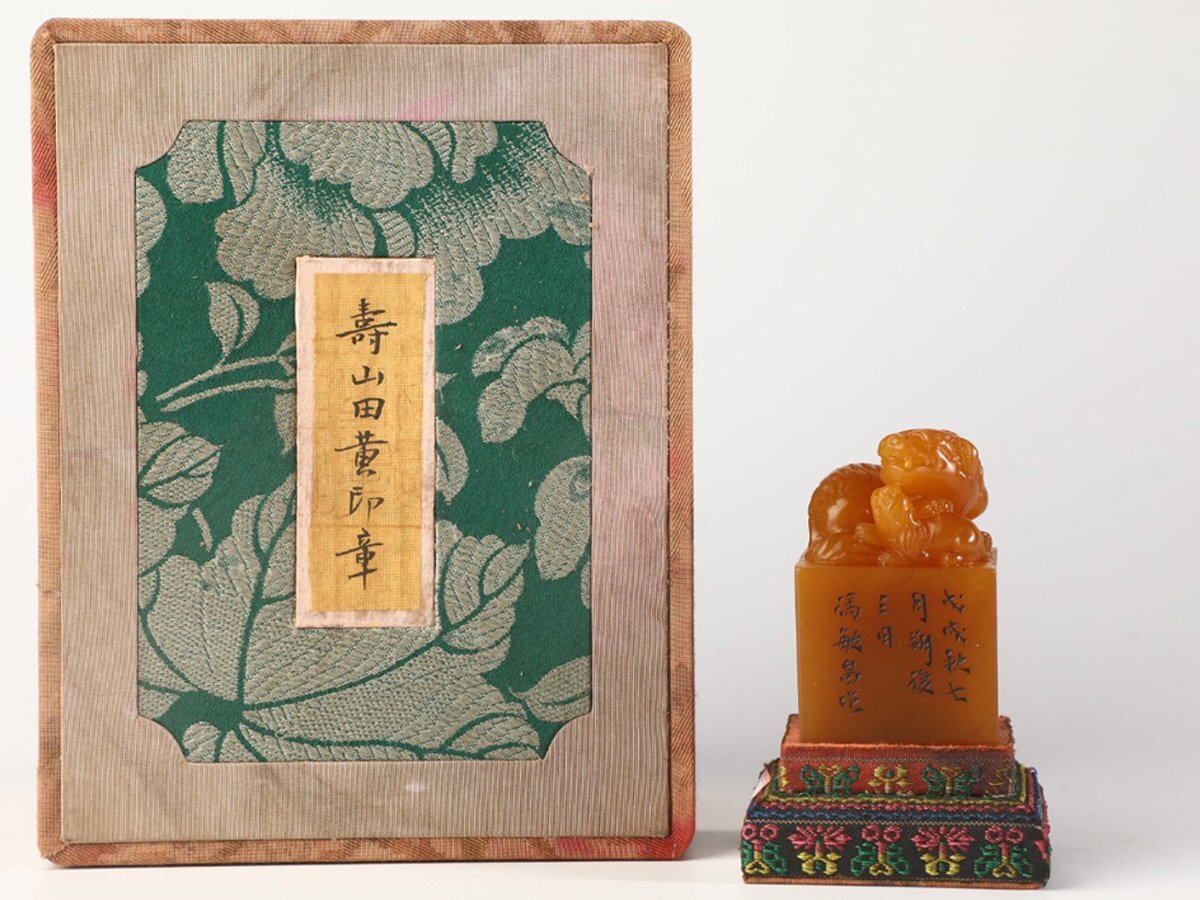 壽山田黃印章
戊戌秋七
月朔後
三日
馮敏昌作